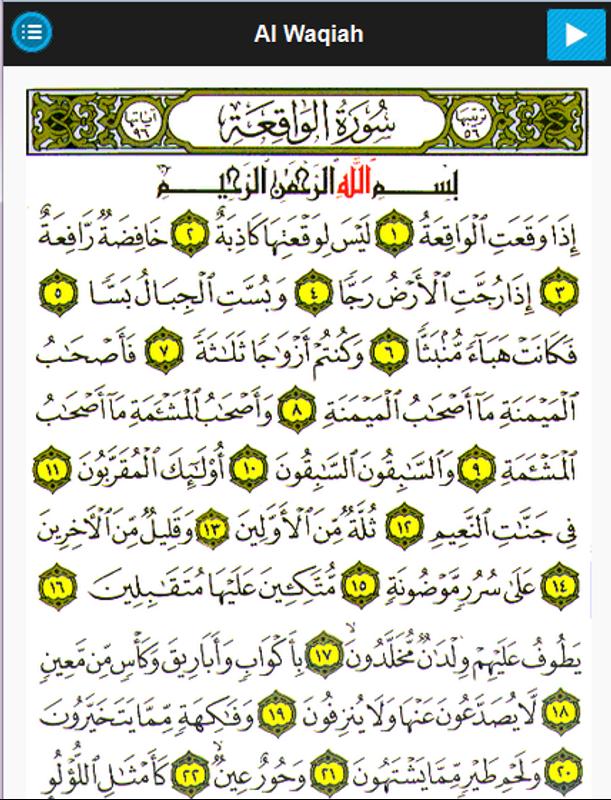 Al Waqiah
سُورَةُ الوَاقِعَة ترتيبها ٥٦ آياتها ٩٦
بِسْمِ اللَّهِ الرَّحْمَٰنِ الرَّحِيمِ
إِذَا وَقَعَتِ ٱلْوَاقِعَةُ ١ لَيْسَ لِوَقْعَتِهَا كَاذِبَةٌ ٢ خَافِضَةٌ رَّافِعَةٌ
٣ إِذَا رُجَّتِ ٱلْأَرْضُ رَجًّا ٤ وَبُسَّتِ ٱلْجِبَالُ بَسًّا ٥
فَكَانَتْ هَبَآءً مُّنۢبَثًّا ٦ وَكُنتُمْ أَزْوَٰجًا ثَلَٰثَةً ٧ فَأَصْحَٰبُ
ٱلْمَيْمَنَةِ مَآ أَصْحَٰبُ ٱلْمَيْمَنَةِ ٨ وَأَصْحَٰبُ ٱلْمَشْـَٔمَةِ مَآ أَصْحَٰبُ
ٱلْمَشْـَٔمَةِ ٩ وَٱلسَّٰبِقُونَ ٱلسَّٰبِقُونَ ١٠ أُو۟لَٰٓئِكَ ٱلْمُقَرَّبُونَ ١١
فِى جَنَّٰتِ ٱلنَّعِيمِ ١٢ ثُلَّةٌ مِّنَ ٱلْأَوَّلِينَ ١٣ وَقَلِيلٌ مِّنَ ٱلْـَٔاخِرِينَ
١٤ عَلَىٰ سُرُرٍ مَّوْضُونَةٍ ١٥ مُّتَّكِـِٔينَ عَلَيْهَا مُتَقَٰبِلِينَ ١٦
يَطُوفُ عَلَيْهِمْ وِلْدَٰنٌ مُّخَلَّدُونَ ١٧ بِأَكْوَابٍ وَأَبَارِيقَ وَكَأْسٍ مِّن مَّعِينٍ
١٨ لَّا يُصَدَّعُونَ عَنْهَا وَلَا يُنزِفُونَ ١٩ وَفَٰكِهَةٍ مِّمَّا يَتَخَيَّرُونَ
٢٠ وَلَحْمِ طَيْرٍ مِّمَّا يَشْتَهُونَ ٢١ وَحُورٌ عِينٌ ٢٢ كَأَمْثَٰلِ ٱللُّؤْلُؤِ